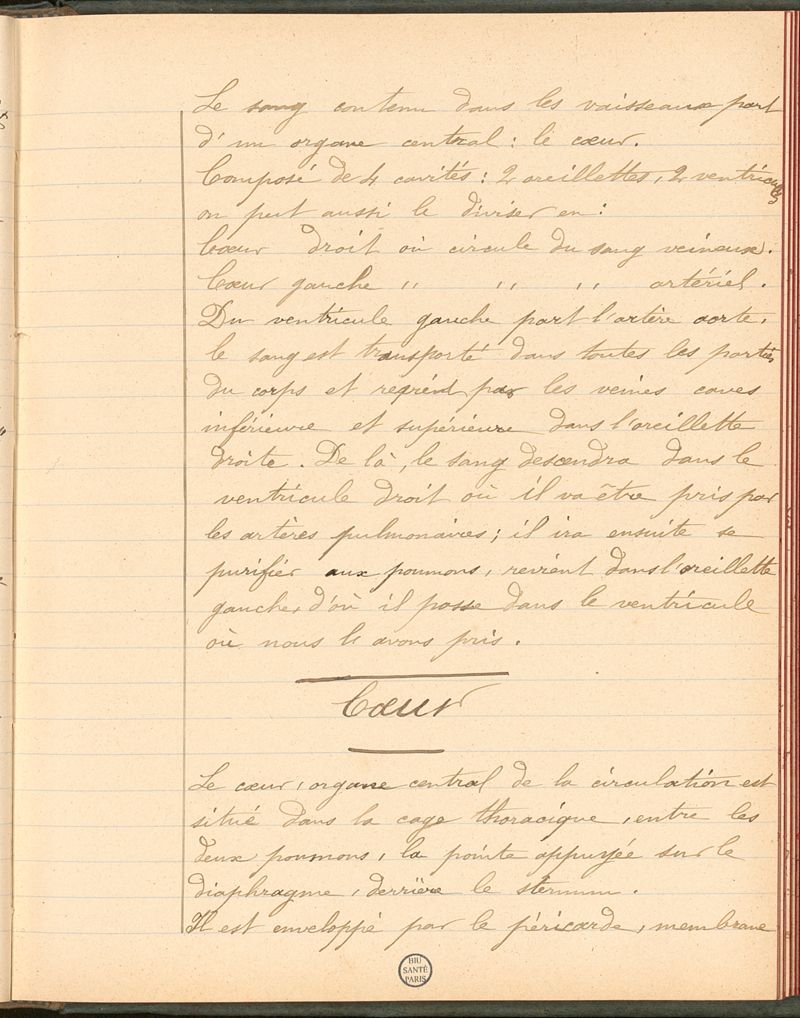 Le sang contenu dans les vaisseaux part
d'un organe central : le cœur.
Composé de 4 cavités : 2 oreillettes, 2 ventricules
on peut aussi le diviser en :
Cœur droit où circule du sang veineux.
Cœur gauche " " " artériel.
Du ventricule gauche part l'artère aorte,
le sang est transporté dans toutes les parties
du corps et revient par les veines caves
inférieure et supérieure dans l'oreillette
droite. De là, le sang descendra dans le
ventricule droit où il va être pris par
les artères pulmonaires ; il ira ensuite se
purifier aux poumons, revient dans l'oreillette
gauche, d'où il passe dans le ventricule
où nous l'avons pris.
Cœur
Le cœur, organe central de la circulation est
situé dans la cage thoracique, entre les
deux poumons, la pointe appuyée sur le
diaphragme, derrière le sternum.
Il est enveloppé par le péricarde, membrane
BIU
SANTÉ
PARIS